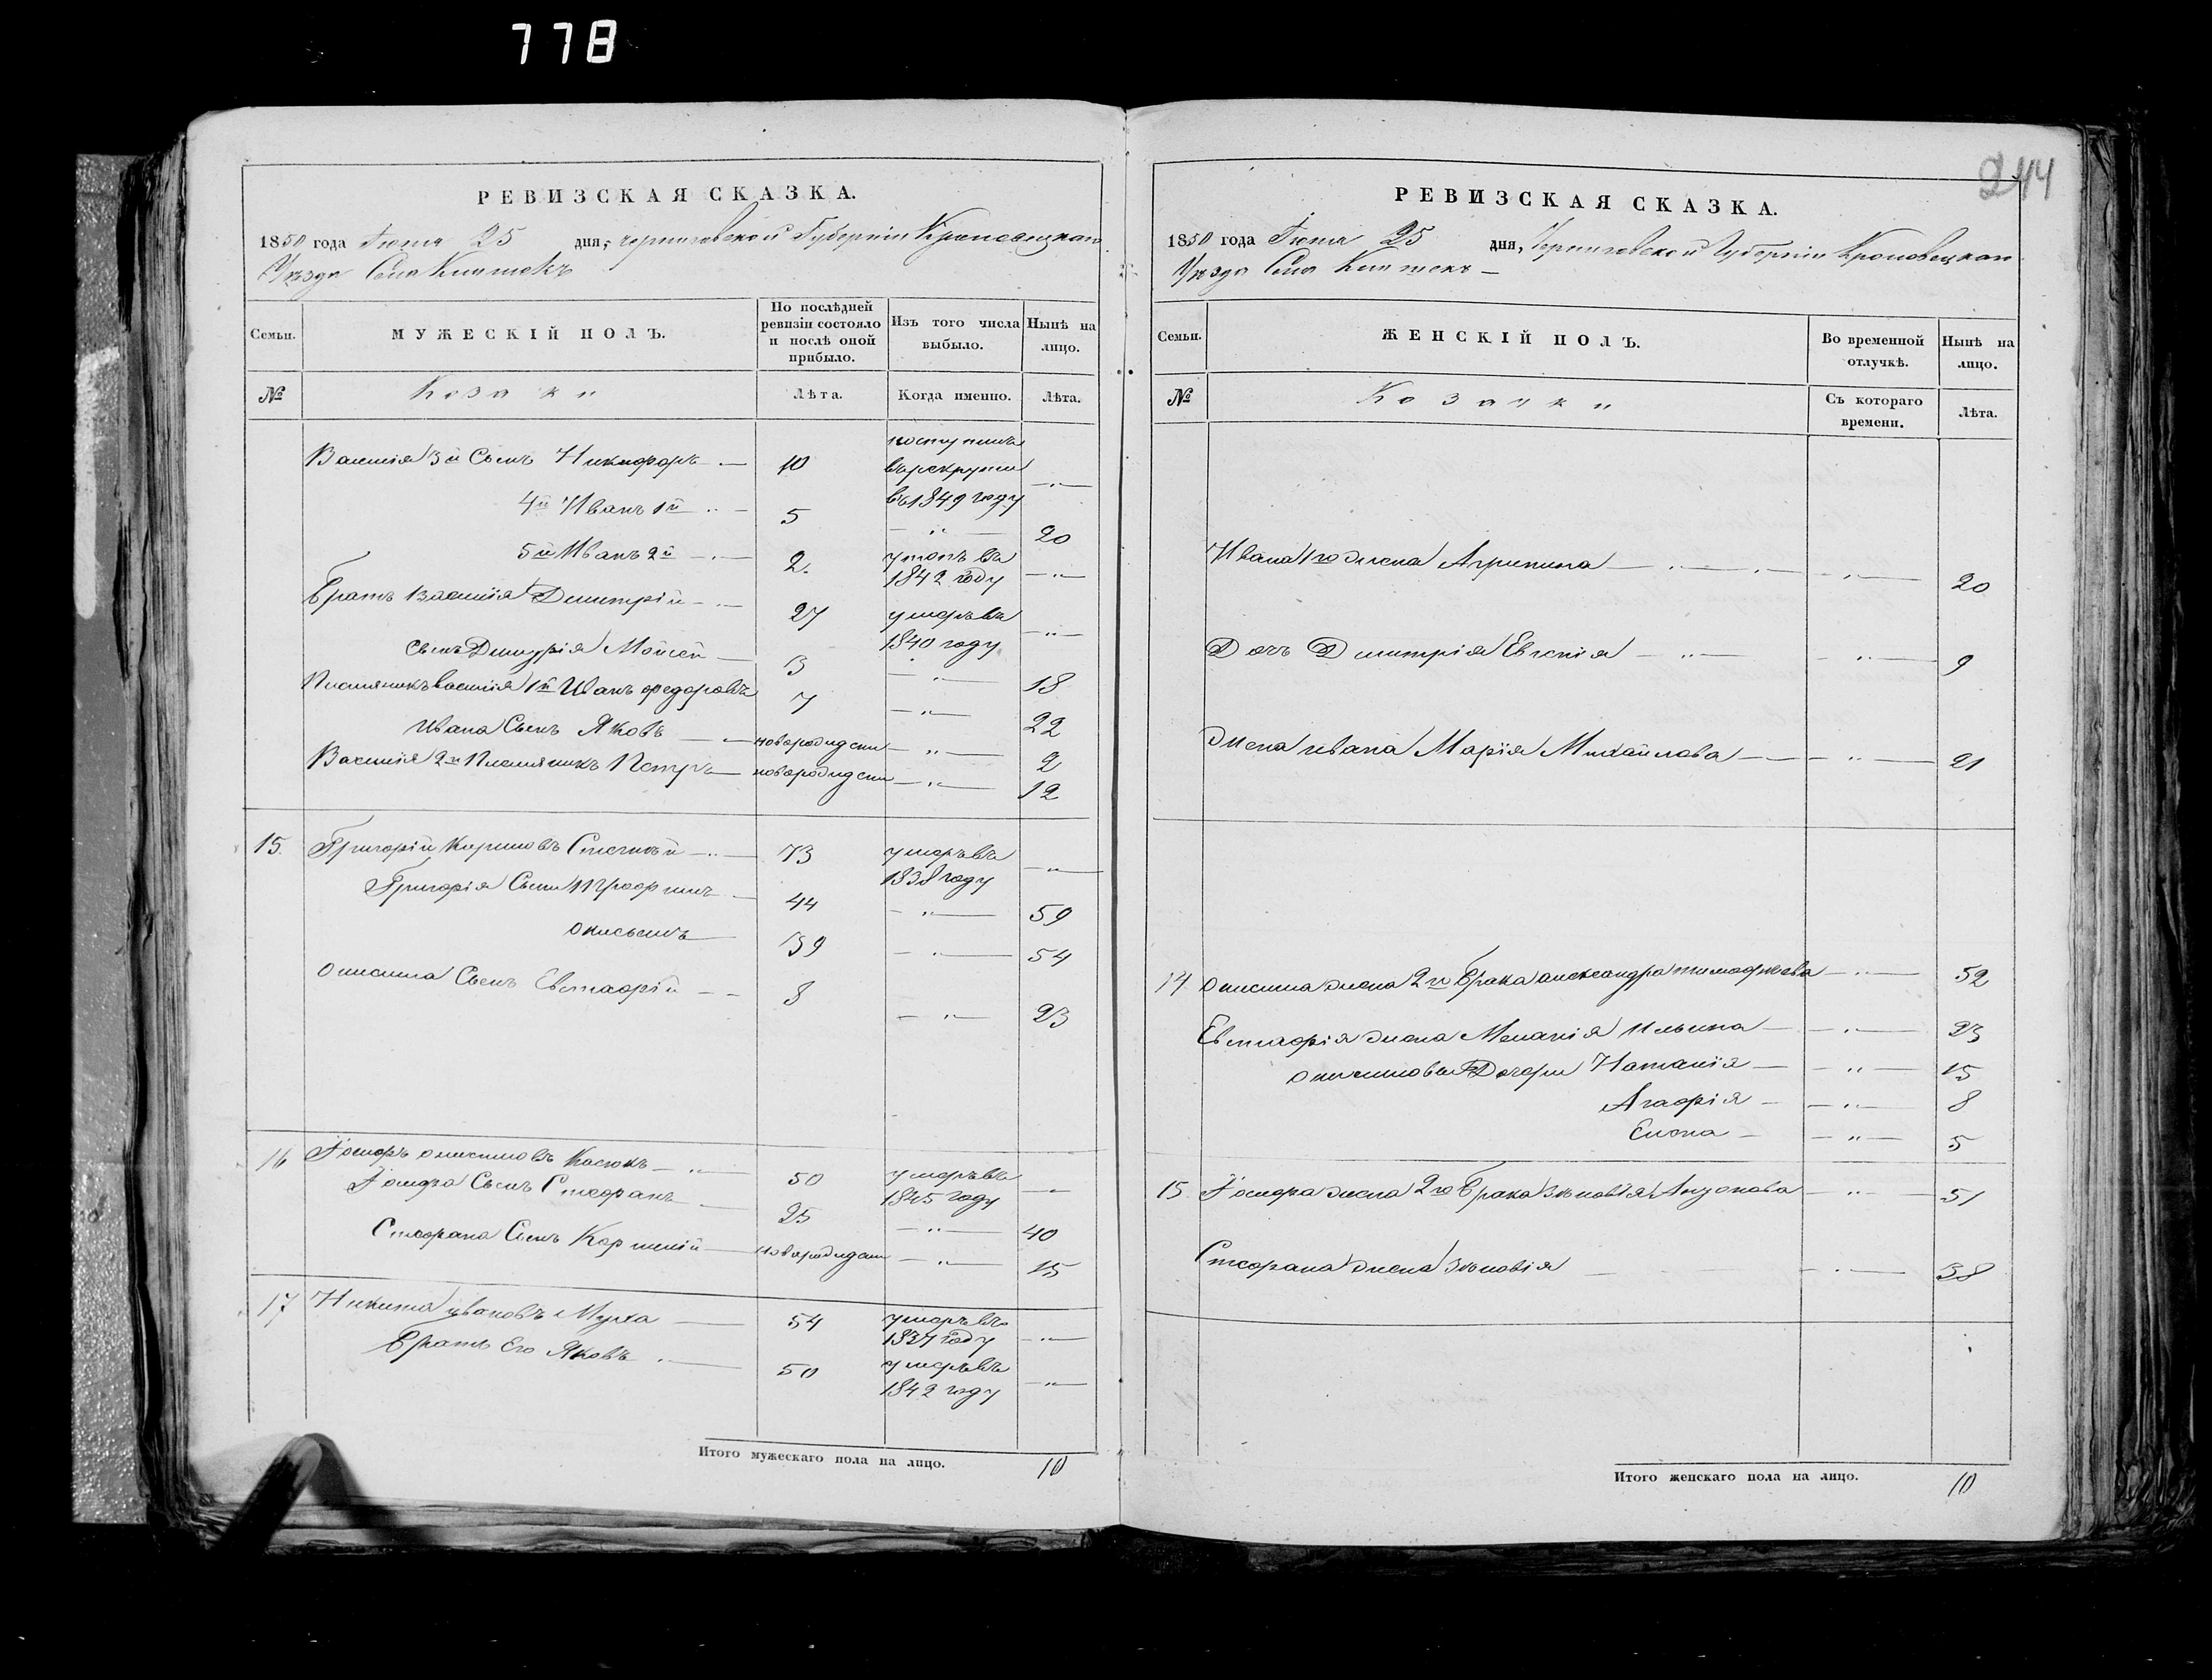 778
244
РЕВИЗСКАЯ СКАЗКА.
1850 года 25 дня, черниговской Губерніи Кролевецкаго
Уѣзда Села
Семьи. МУЖЕСКІЙ ПОЛЪ. По послѣдней ревизіи состояло и послѣ оной прибыло. Изъ того числа выбыло. Нынѣ на лицо.
№ Козаки Лѣта. Когда именно. Лѣта.
Василія 3й Сынъ Никифоръ 10 поступилъ въ рекруты въ 1849 году
4й Иванъ 1й 5 20
5й Иванъ 2й 2 1842 году
Братъ Василія Дмитрій 27 умеръ въ 1840 году
Сынъ Дмитрія Мойсей 3 18
Племяникъ василія 1й Иванъ федоровъ 7 22
Ивана Сынъ Яковъ новорожден 2
Василія 2й Племяникъ Петръ новорожден 12
15. Григорій 73 умеръ въ 1838 году
Григорія Сыни 44 59
онисимъ 39 54
онисима Сынъ Евстафій 8 23
16 онисимовъ 50 умеръ въ 1845 году
Сынъ Стефанъ 25 40
Стефана Сынъ новорожден 15
17 Никита ивановъ Муха 54 умеръ въ 1837 году
Братъ Его Яковъ 50 умеръ въ 1842 году
Итого мужескаго пола на лицо. 10
РЕВИЗСКАЯ СКАЗКА.
1850 года 25 дня, Черниговской Губерніи Кроловецкаго
Уѣзда Села
Семьи. ЖЕНСКІЙ ПОЛЪ. Во временной отлучкѣ. Нынѣ на лицо.
№ Козачки Съ котораго времени. Лѣта.
Ивана 1го жена Агрипина 20
Дочь Дмитрія Евгенія 9
Жена ивана Марія Михайлова 21
14 онисима жена 2го Брака александра тимофѣева 52
Евстафія жена Меланія Ильина 23
онисимовы Дочери Наталія 15
Агафія 8
Елена 5
15. жена 2го Брака Зѣновія Антонова 51
Стефана жена Зѣновія 38
Итого женскаго пола на лицо. 10